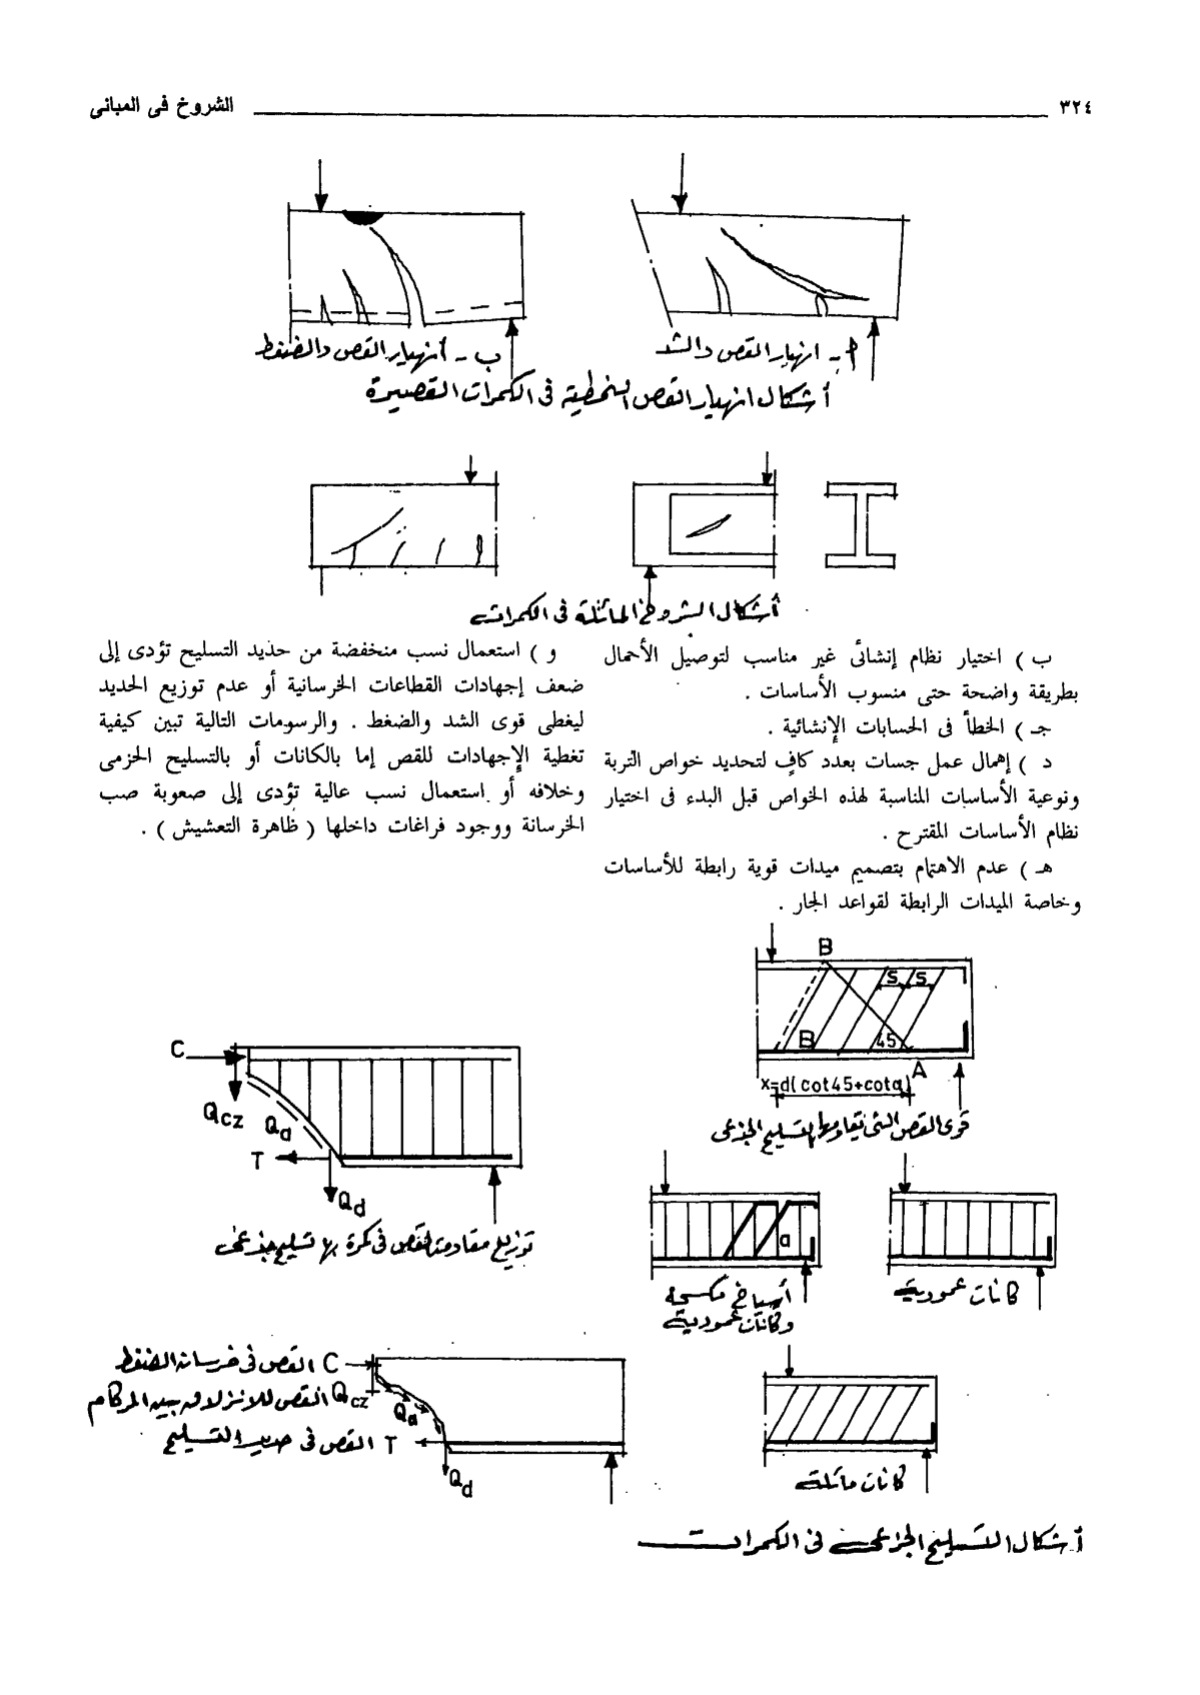 ٣٢٤
الشروخ فى المبانى
أ - انهيار القص والشد
ب - أنهيار القص والضغط
أشكال انهيار القص النمطية فى الكمرات القصيرة
أشكال الشروخ المائلة فى الكمرات
ب ) اختيار نظام إنشائى غير مناسب لتوصيل الأحمال
بطريقة واضحة حتى منسوب الأساسات .
جـ ) الخطأ فى الحسابات الإنشائية .
د ) إهمال عمل جسات بعدد كافٍ لتحديد خواص التربة
ونوعية الأساسات المناسبة لهذه الخواص قبل البدء فى اختيار
نظام الأساسات المقترح .
هـ ) عدم الاهتمام بتصميم ميدات قوية رابطة للأساسات
وخاصة الميدات الرابطة لقواعد الجار .
و ) استعمال نسب منخفضة من حذيد التسليح تؤدى إلى
ضعف إجهادات القطاعات الخرسانية أو عدم توزيع الحديد
ليغطى قوى الشد والضغط . والرسومات التالية تبين كيفية
تغطية الإجهادات للقص إما بالكانات أو بالتسليح الحزمى
وخلافه أو استعمال نسب عالية تؤدى إلى صعوبة صب
الخرسانة ووجود فراغات داخلها ( ظاهرة التعشيش ) .
B
S S
B 45
A
x=d(cot45+cotα)
قوى القص التى يقاومها التسليح الجذعى
C
Qcz
Qa
T
Qd
توزيع مقاومة القص فى كمرة بها تسليح جذعى
a
أسياخ مكسحة
وكانات عمودية
كانات عمودية
C القص فى خرسانة الضغط
Qcz القص للانزلاق بين الركام
Qa
T القص فى حديد التسليح
Qd
كانات مائلة
أشكال التسليح الجزعى فى الكمرات